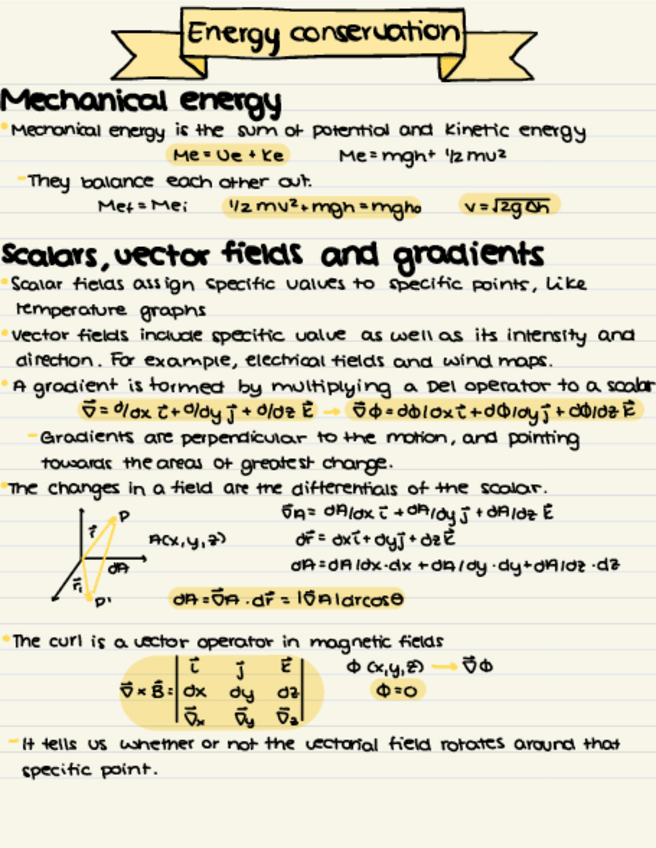 Energy conservation
Mechanical energy
Mechanical energy is the sum of potential and kinetic energy
Me = Ue + Ke    Me = mgh + 1/2 mv²
They balance each other out.
Mef = Mei    1/2 mv² + mgh = mgh₀    v = √2gΔh
Scalars, vector fields and gradients
Scalar fields assign specific values to specific points, like
temperature graphs
Vector fields include specific value as well as its intensity and
direction. For example, electrical fields and wind maps.
A gradient is formed by multiplying a Del operator to a scalar
∇⃗ = d/dx i⃗ + d/dy j⃗ + d/dz k⃗ → ∇⃗Φ = dΦ/dx i⃗ + dΦ/dy j⃗ + dΦ/dz k⃗
Gradients are perpendicular to the motion, and pointing
towards the areas of greatest change.
The changes in a field are the differentials of the scalar.
∇⃗A = dA/dx i⃗ + dA/dy j⃗ + dA/dz k⃗
P
r⃗
A(x,y,z)    dr⃗ = dx i⃗ + dy j⃗ + dz k⃗
dA
dA = dA/dx · dx + dA/dy · dy + dA/dz · dz
r⃗₁
P'
dA = ∇⃗A · dr⃗ = |∇⃗A|drcosθ
The curl is a vector operator in magnetic fields
i⃗ j⃗ k⃗    Φ (x,y,z) → ∇⃗Φ
∇⃗ × B⃗ = dx dy dz    Φ = 0
∇⃗x ∇⃗y ∇⃗z
It tells us whether or not the vectorial field rotates around that
specific point.